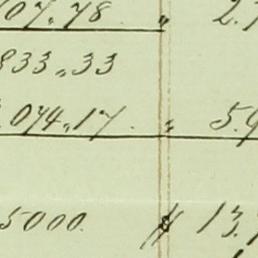 107.78 " 2.
833.33
.074.17. " 5.9
5000. 13.